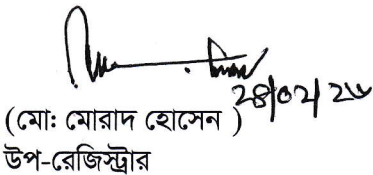 ২৪/০২/২৬
(মো: মোরাদ হোসেন )
উপ-রেজিস্ট্রার